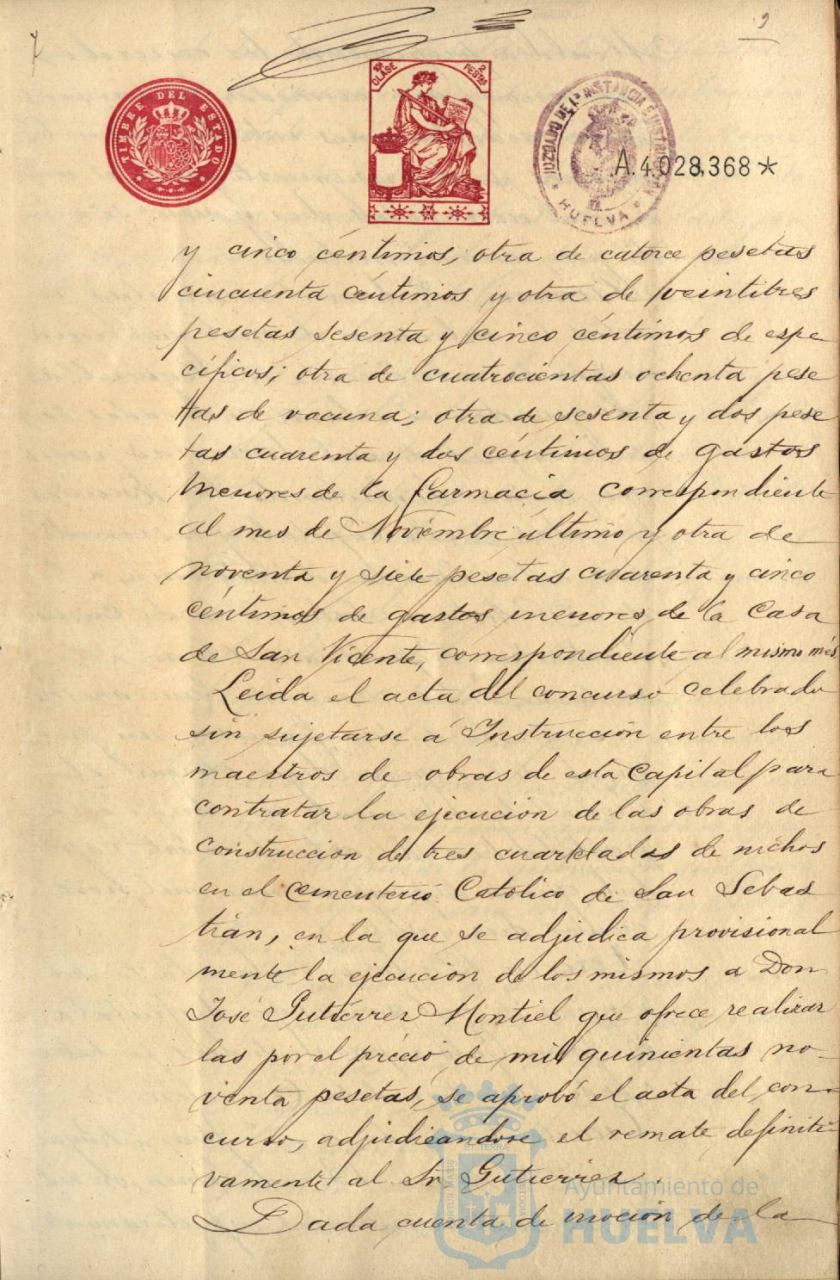 9
TIMBRE DEL ESTADO
10ª CLASE
2 PESETAS
JUZGADO DE 1ª INSTANCIA E INSTRUCCION
HUELVA
A.4.028,368*
y cinco céntimos; otra de catorce pesetas
cincuenta céntimos y otra de veintitres
pesetas sesenta y cinco céntimos de espe
cíficos; otra de cuatrocientas ochenta pese
tas de vacuna; otra de sesenta y dos pese
tas cuarenta y dos céntimos de gastos
menores de la farmacia correspondiente
al mes de Noviembre último y otra de
noventa y siete pesetas cuarenta y cinco
céntimos de gastos menores de la Casa
de San Vicente, correspondiente al mismo mes
Leida el acta del concurso celebrado
sin sujetarse á Instrucción entre los
maestros de obras de esta Capital para
contratar la ejecución de las obras de
construccion de tres cuarteladas de nichos
en el cementerio Católico de San Sebas
tián, en la que se adjudica provisional
mente la ejecución de los mismos a Don
José Gutiérrez Montiel que ofrece realizar
las por el précio de mil quinientas no-
venta pesetas, se aprobó el acta del con-
curso, adjudicandose el remate definiti-
vamente al Sr. Gutierrez.
Dada cuenta de moción de la
Ayuntamiento de
HUELVA